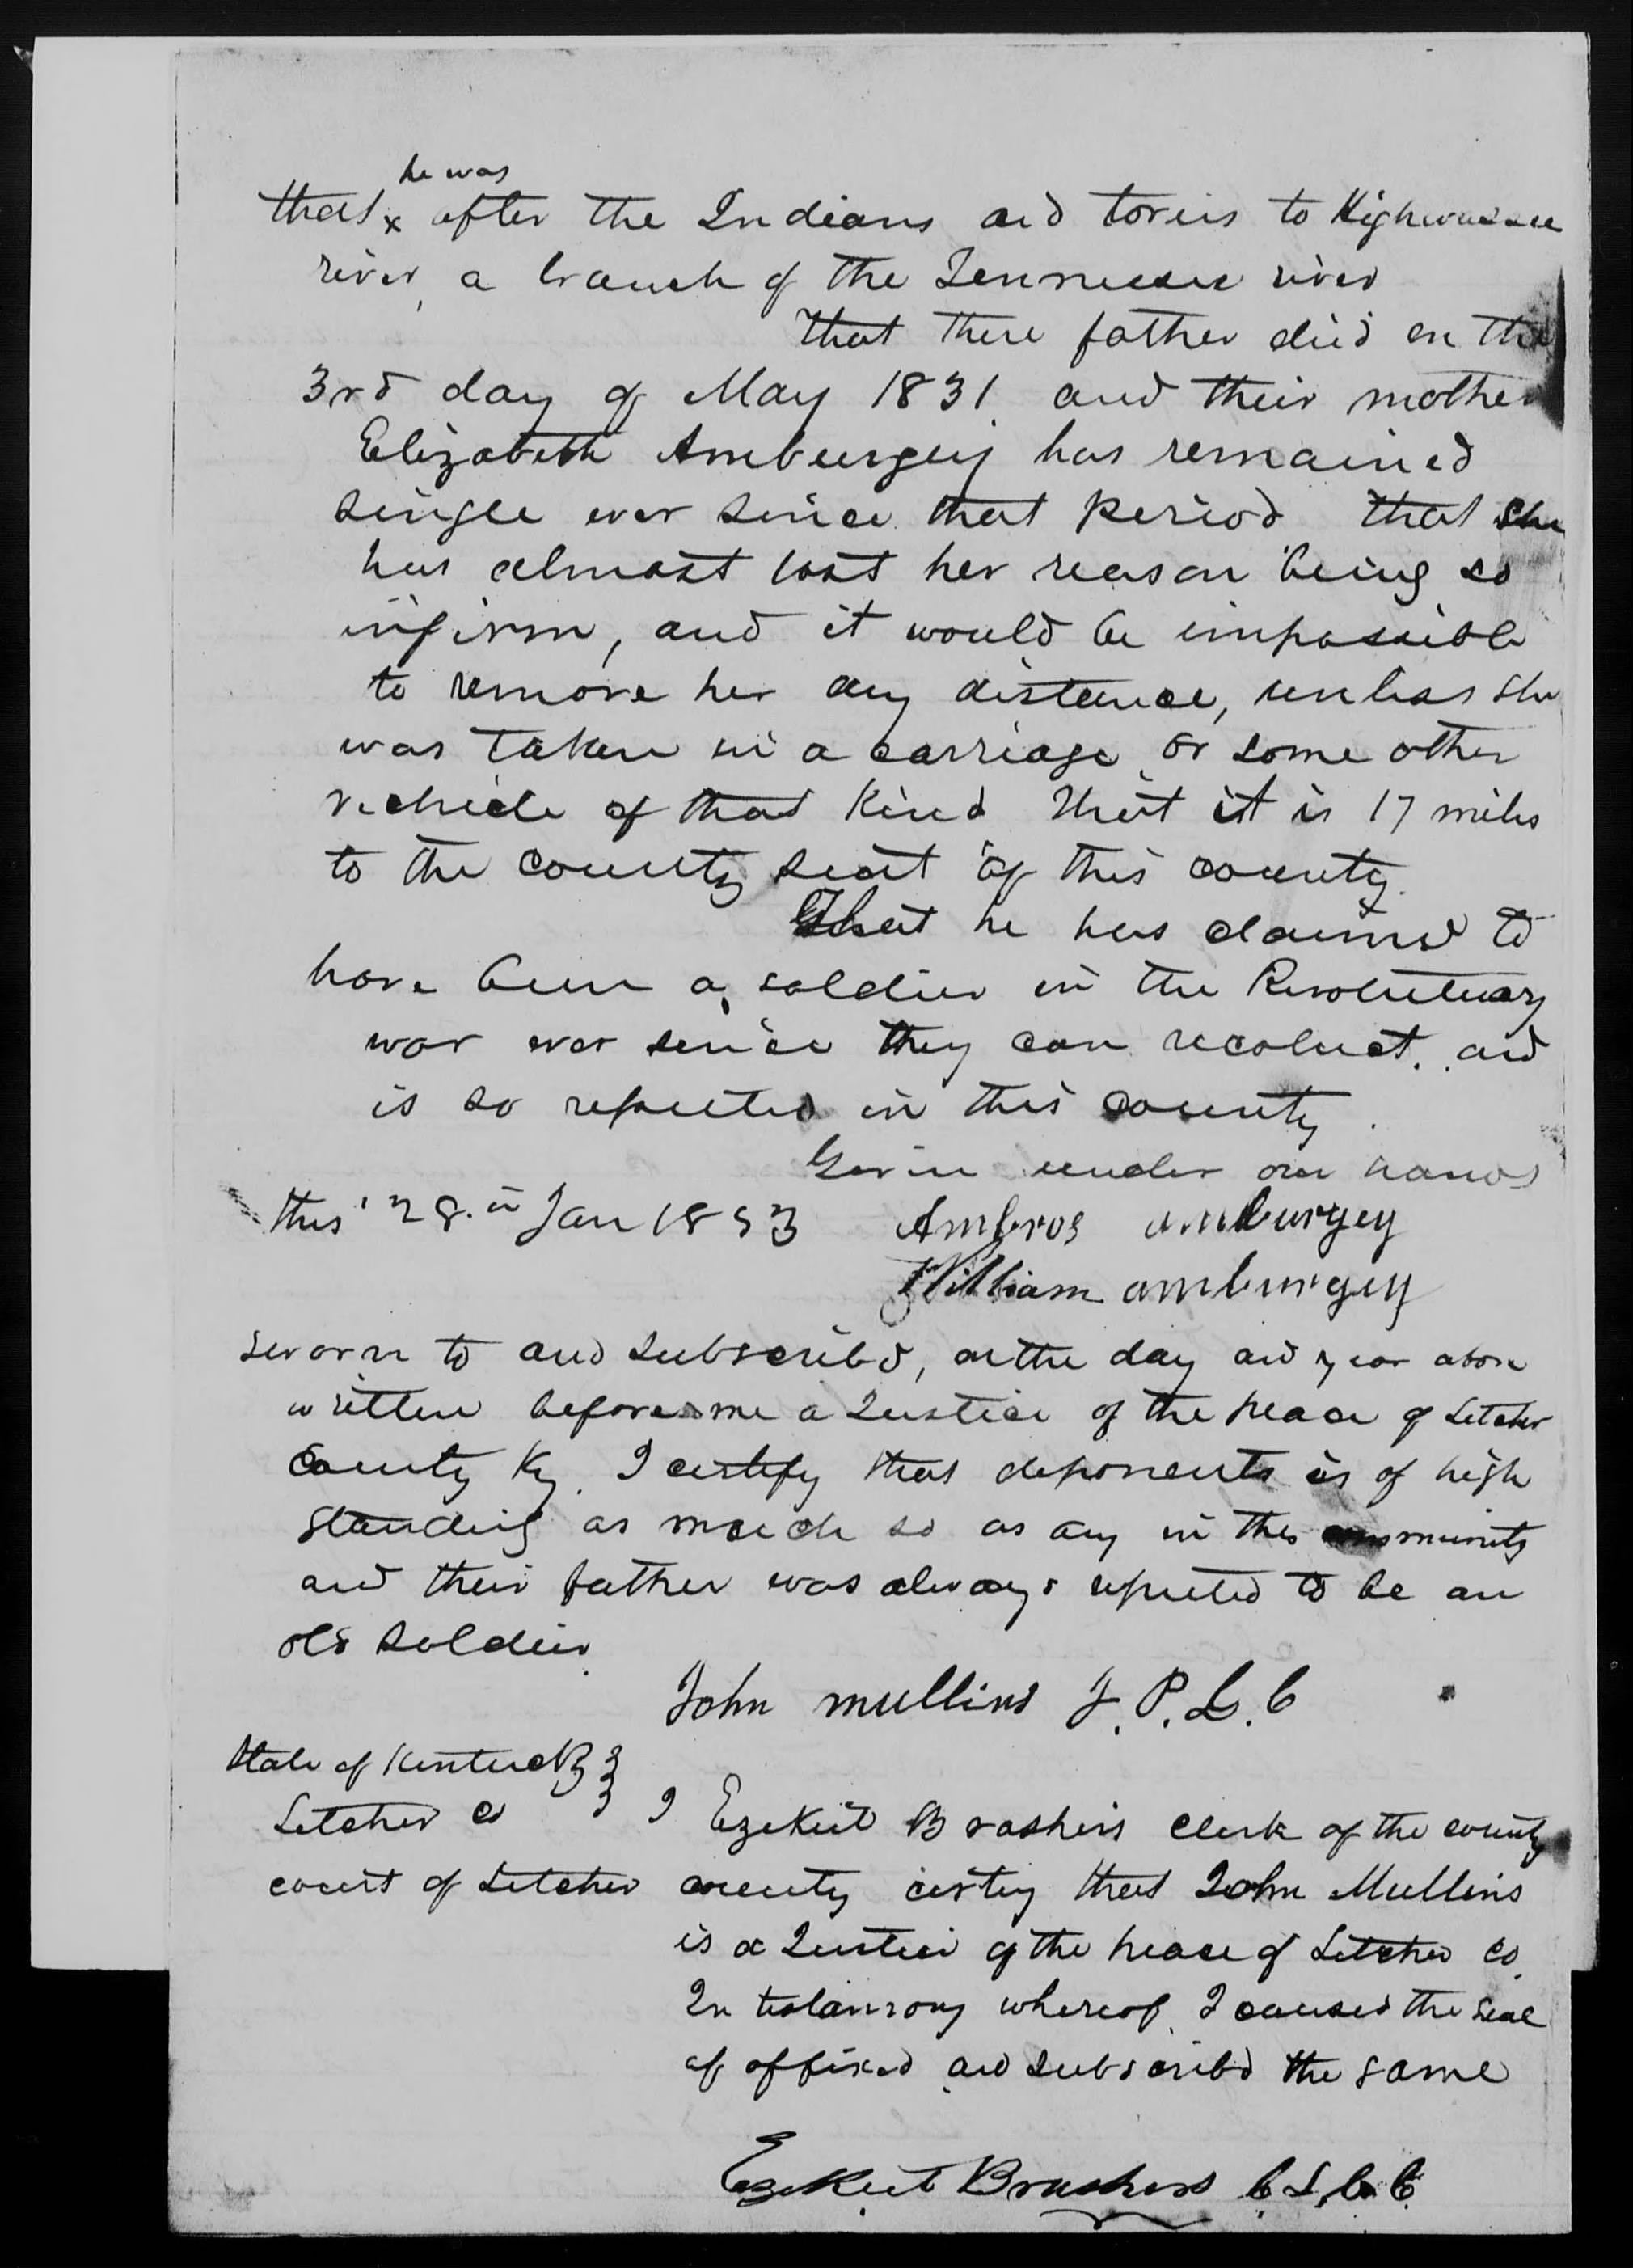 he was
that x after the Indians and tories to Highwassee
river, a branch of the Tennessee river
That there father died on the
3rd day of May 1831 and their mother
Elizabeth Amburgey has remained
single ever since that period that she
has almost lost her reason being so
infirm, and it would be impossible
to remove her any distance, unless she
was taken in a carriage or some other
vehicle of that kind That it is 17 miles
to the county seat of this county.
That he has claimed to
have been a soldier in the Revolutuary
war ever since they can recolect. and
is so reputed in this county.
Given under our hands
this 28th Jan 1853 Ambros amburgey
William amburgey
sworn to and subscribd, on the day and year above
written before me a Justice of the peace of Letcher
County Ky. I certify that deponents is of high
standing as much so as any in this community
and their father was always reputed to be an
old soldier.
John mullins J. P. L. C
State of Kentucky }
Letcher co } I Ezekiel Brashers clerk of the county
court of Letcher county certiy that John Mullins
is a Justice of the peace of Letcher co.
In testamony whereof I caused the seal
of affixed and subscribd the same
Ezekiel Brashers C. L. C. C.